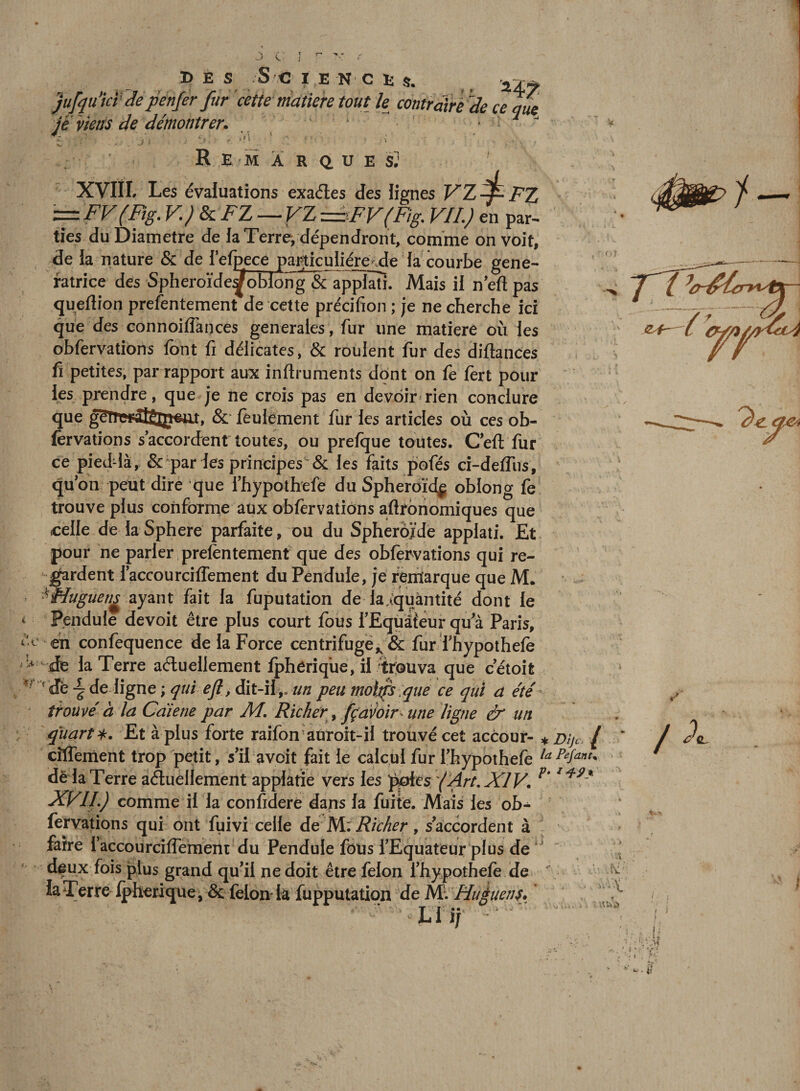 DES SCIENCES. 247
jusqu'ici de penser sur cette matiere tout le contraire de ce que
je viens de démontrer.
REMARQUES.
XVIII. Les évaluations exactes des lignes VZ + FZ
= FV (Fig. V.) & FZ — VZ = FV (Fig. VII.) en par-
ties du Diametre de la Terre, dépendront, comme on voit,
de la nature & de l'espece particuliére de la courbe gene-
ratrice des Spheroïdes oblong & applati. Mais il n'est pas
question presentement de cette précision ; je ne cherche ici
que des connoissances generales, sur une matiere où les
observations sont si délicates, & roulent sur des distances
si petites, par rapport aux instruments dont on se sert pour
les prendre, que je ne crois pas en devoir rien conclure
que generalement, & seulement sur les articles où ces ob-
servations s'accordent toutes, ou presque toutes. C'est sur
ce pied-là, & par les principes & les faits posés ci-dessus,
qu'on peut dire que l'hypothese du Spheroïde oblong se
trouve plus conforme aux observations astronomiques que
celle de la Sphere parfaite, ou du Spheroïde applati. Et
pour ne parler presentement que des observations qui re-
gardent l'accourcissement du Pendule, je remarque que M.
Huguens ayant fait la suputation de la quantité dont le
Pendule devoit être plus court sous l'Equateur qu'à Paris,
en consequence de la Force centrifuge, & sur l'hypothese
de la Terre actuellement spherique, il trouva que c'étoit
de 5/6 de ligne ; qui est, dit-il, un peu moins que ce qui a été
trouvé à la Caïene par M. Richer, sçavoir une ligne & un
quart *. Et à plus forte raison auroit-il trouvé cet accour-
* Dis.
cissement trop petit, s'il avoit fait le calcul sur l'hypothese
la Pesant.
de la Terre actuellement applatie vers les poles (Art. XIV.
p. 149.
XVII.) comme il la considere dans la suite. Mais les ob-
servations qui ont suivi celle de M. Richer, s'accordent à
faire l'accourcissement du Pendule sous l'Equateur plus de
deux fois plus grand qu'il ne doit être selon l'hypothese de
la Terre spherique, & selon la supputation de M. Huguens.
Ll ij